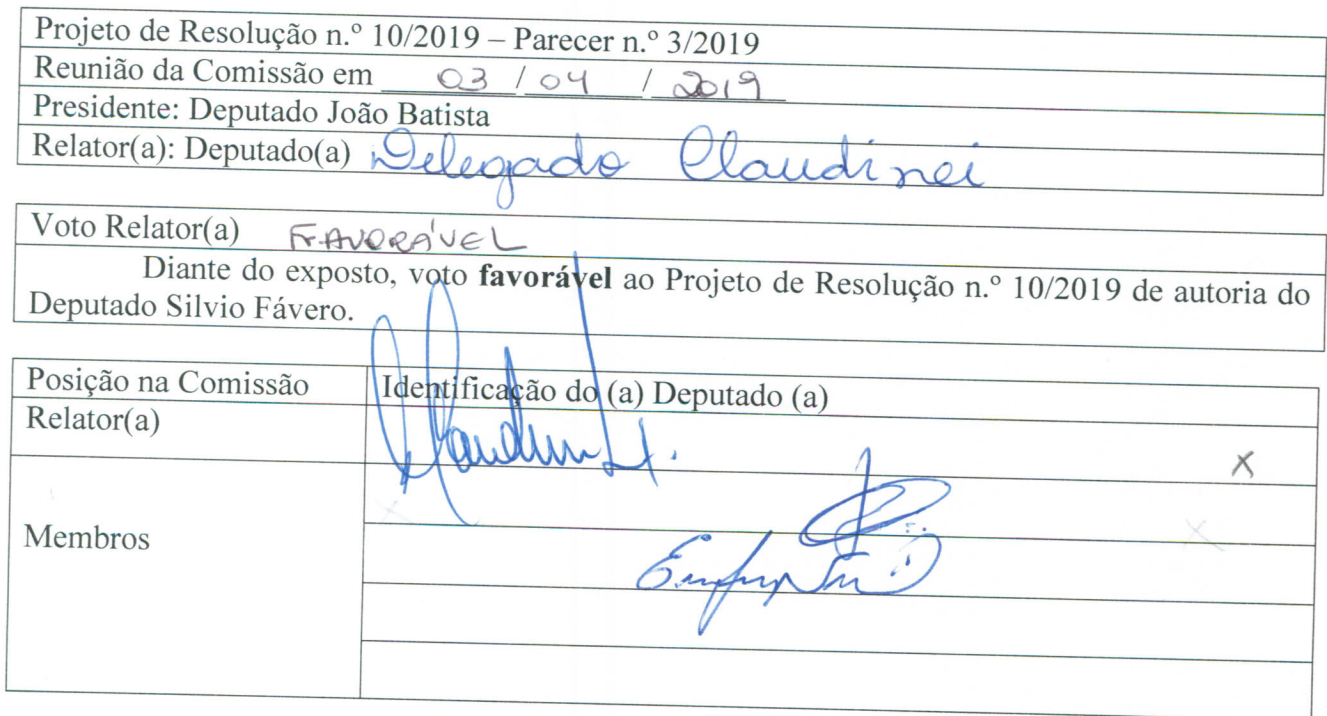 Projeto de Resolução n.º 10/2019 – Parecer n.º 3/2019
Reunião da Comissão em 03 / 04 / 2019
Presidente: Deputado João Batista
Relator(a): Deputado(a) Delegado Claudinei
Voto Relator(a) FAVORÁVEL
Diante do exposto, voto favorável ao Projeto de Resolução n.º 10/2019 de autoria do
Deputado Silvio Fávero.
Posição na Comissão Identificação do (a) Deputado (a)
Relator(a)
X
Membros